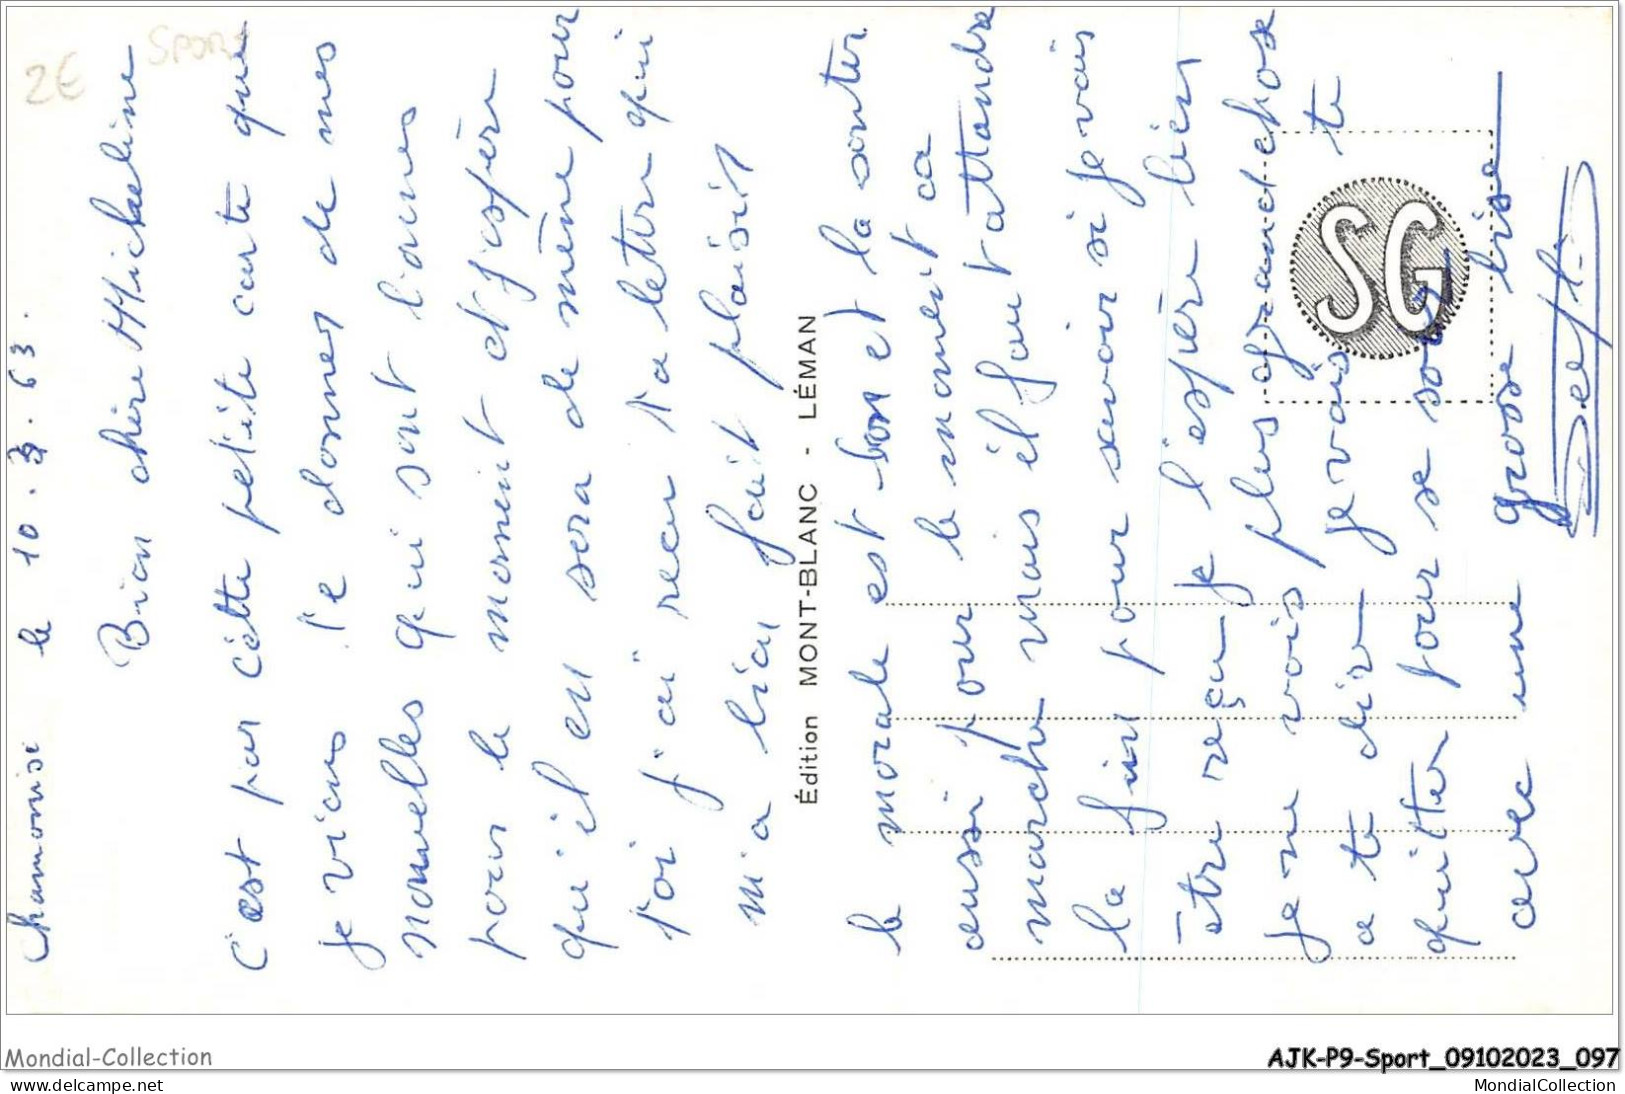 Chamonix le 10.3.63.
Bien chère Michaeline
C'est par cette petite carte que
je viens te donner de mes
nouvelles qui sont bonnes
pour le moment et j'espère
qu'il en sera de même pour
toi j'ai reçu ta lettre qui
m'a bien fait plaisir
Édition MONT-BLANC - LÉMAN
le morale est bon et la santer
aussi pour le moment ca
marche mais il faut attandre
la fin pour savoir si je vais
être reçu je l'espère bien
je ne vois plus grand chose
a te dire je vais te
quitter pour se soir
avec une grosse bise
SG
2€
SPORT
Mondial-Collection
AJK-P9-Sport_09102023_097
www.delcampe.net
MondialCollection